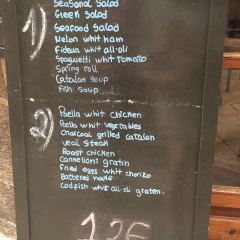 Seasonal salad
1) Greek salad
Seafood salad
Melon whit ham
Fideua whit all-oli
Spaguetti whit tomato
Spring roll
Catalan soup
Fish soup
2) Paella whit chicken
Paella whit vegetables
Charcoal grilled catalan
veal steak
Roast chicken
Cannelloni gratin
Fried eggs whit chorizo
Battered hake
Codfish whit all-oli graten.